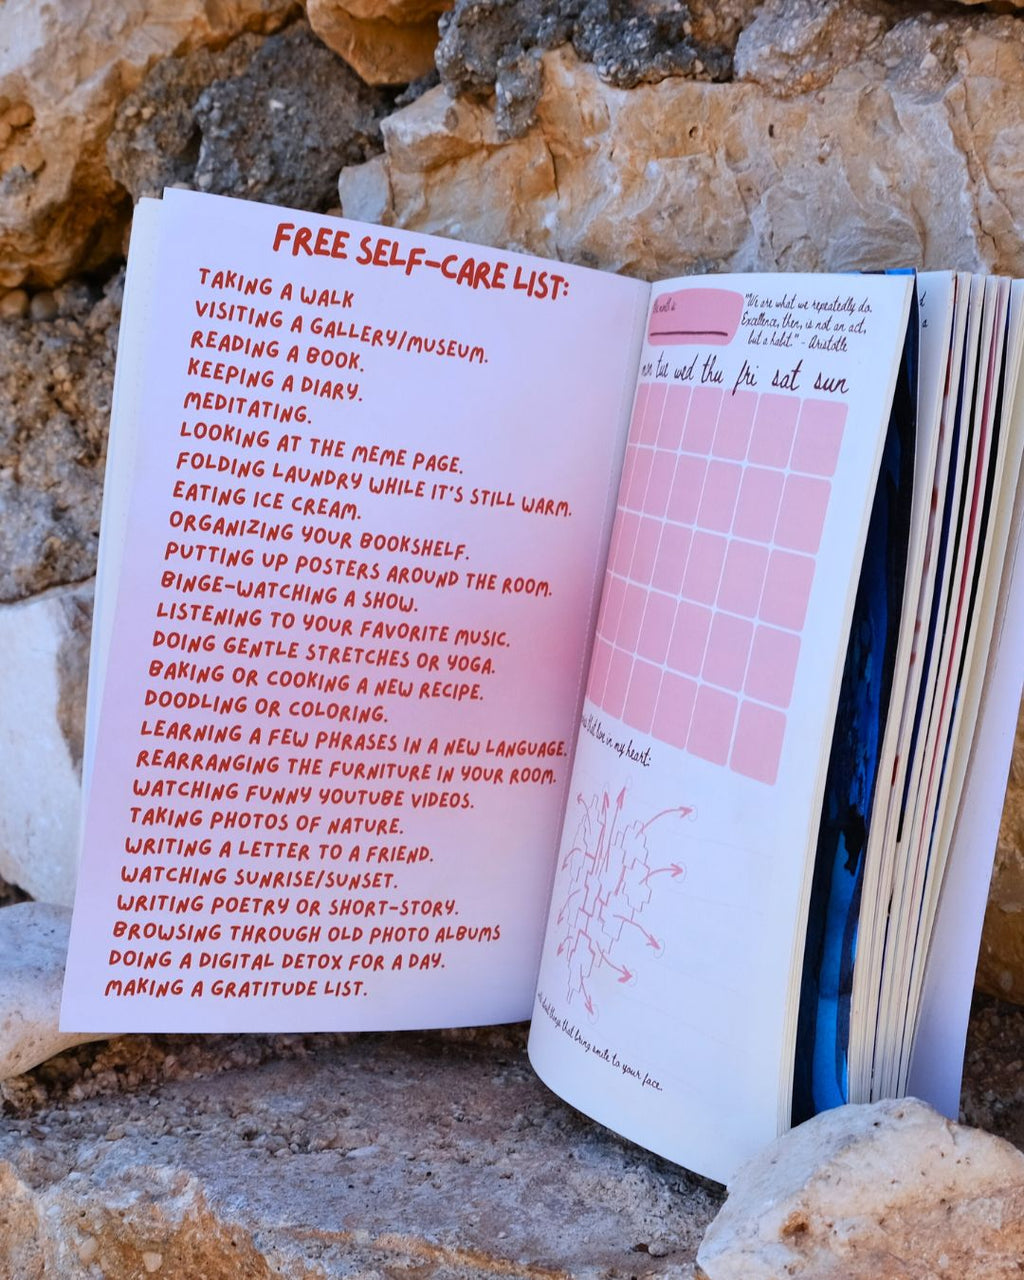 FREE SELF-CARE LIST:
TAKING A WALK
VISITING A GALLERY/MUSEUM.
READING A BOOK.
KEEPING A DIARY.
MEDITATING.
LOOKING AT THE MEME PAGE.
FOLDING LAUNDRY WHILE IT'S STILL WARM.
EATING ICE CREAM.
ORGANIZING YOUR BOOKSHELF.
PUTTING UP POSTERS AROUND THE ROOM.
BINGE-WATCHING A SHOW.
LISTENING TO YOUR FAVORITE MUSIC.
DOING GENTLE STRETCHES OR YOGA.
BAKING OR COOKING A NEW RECIPE.
DOODLING OR COLORING.
LEARNING A FEW PHRASES IN A NEW LANGUAGE.
REARRANGING THE FURNITURE IN YOUR ROOM.
WATCHING FUNNY YOUTUBE VIDEOS.
TAKING PHOTOS OF NATURE.
WRITING A LETTER TO A FRIEND.
WATCHING SUNRISE/SUNSET.
WRITING POETRY OR SHORT-STORY.
BROWSING THROUGH OLD PHOTO ALBUMS
DOING A DIGITAL DETOX FOR A DAY.
MAKING A GRATITUDE LIST.
"We are what we repeatedly do.
Excellence, then, is not an act,
but a habit." - Aristotle
tue wed thu fri sat sun
in my heart:
things that bring smile to your face.